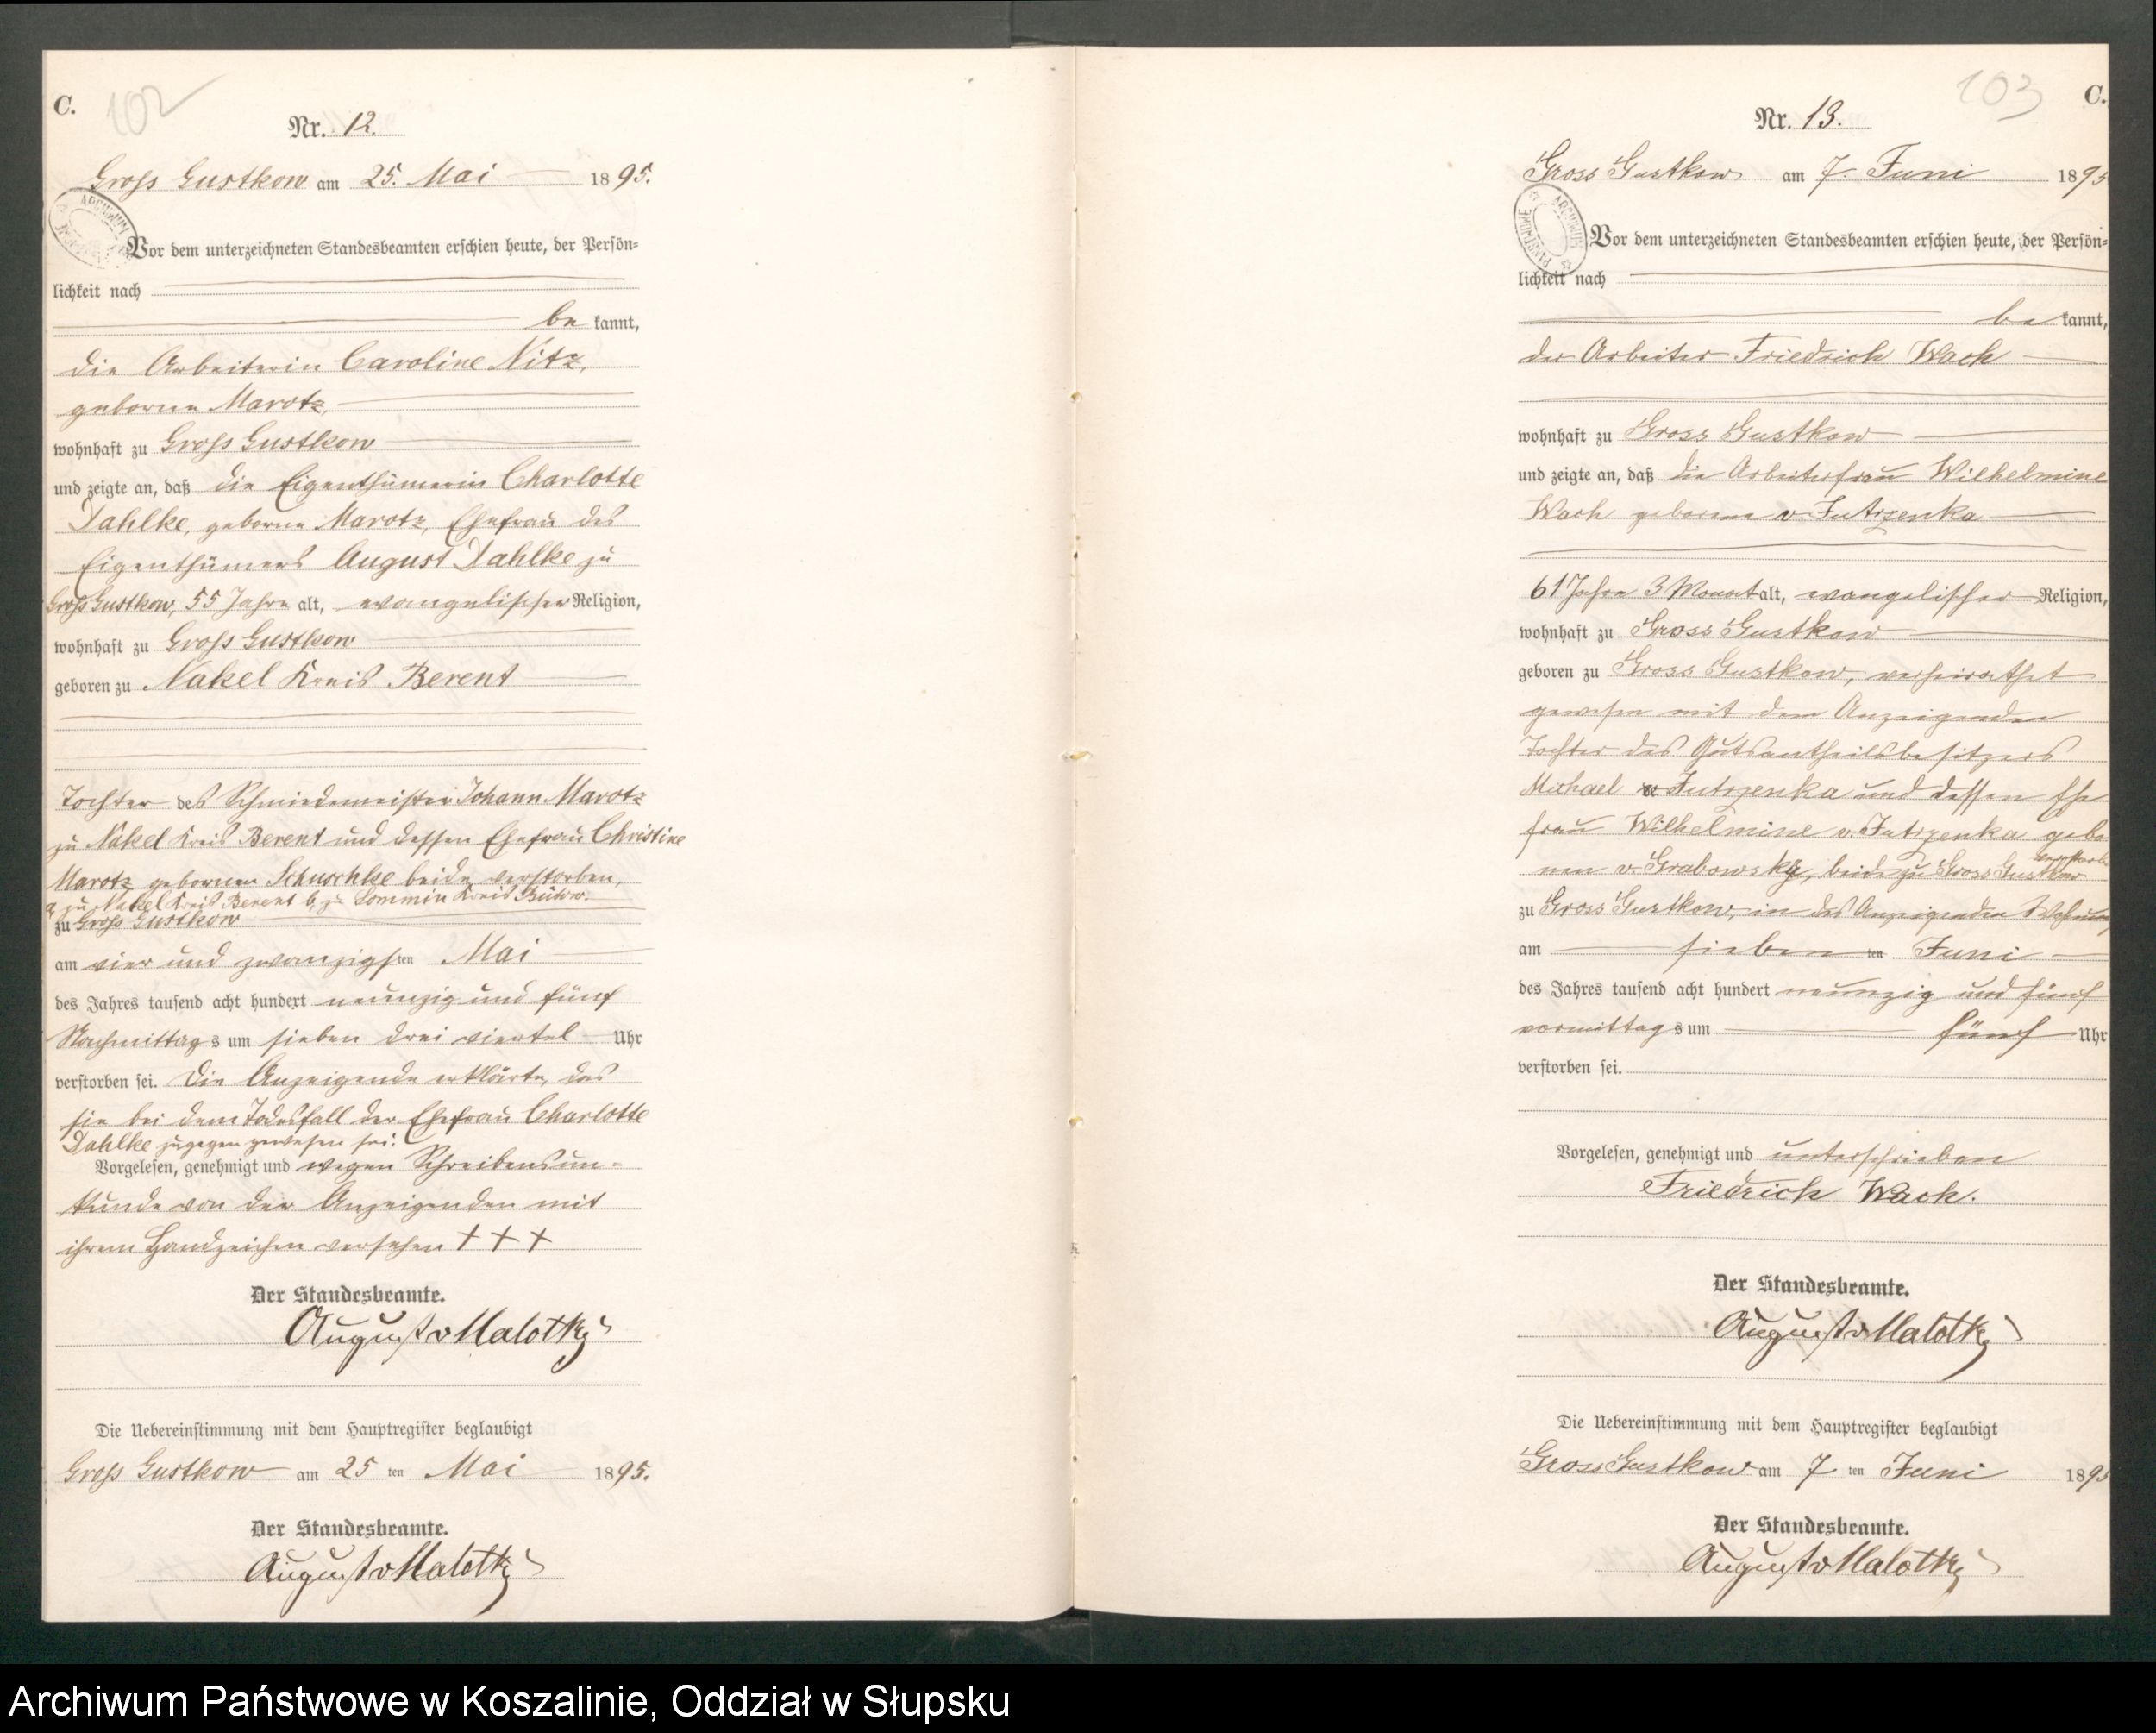 C.
102
Nr. 12.
Groß Gustkow am 25. Mai 1895.
Vor dem unterzeichneten Standesbeamten erschien heute, der Persön=
lichkeit nach
be kannt,
die Arbeiterin Caroline Nitz,
geborne Marotz,
wohnhaft zu Groß Gustkow
und zeigte an, daß die Eigenthümerin Charlotte
Dahlke, geborne Marotz, Ehefrau des
Eigenthümers August Dahlke zu
Groß Gustkow, 55 Jahre alt, evangelischer Religion,
wohnhaft zu Groß Gustkow
geboren zu Nakel Kreis Berent
Tochter des Schmiedemeister Johann Marotz
zu Nakel Kreis Berent und dessen Ehefrau Christine
Marotz gebornen Schuschke beide verstorben,
a, zu Nakel Kreis Berent b, zu Sommin Kreis Bütow.
zu Groß Gustkow
am vier und zwanzigsten Mai
des Jahres tausend acht hundert neunzig und fünf
Nachmittags um sieben drei viertel Uhr
verstorben sei. Die Anzeigende erklärte, das
sie bei dem Todesfall der Ehefrau Charlotte
Dahlke zugegen gewesen sei.
Vorgelesen, genehmigt und wegen Schreibensun-
kunde von der Anzeigenden mit
ihrem Handzeichen versehen + + +
Der Standesbeamte.
August v Malotky
Die Uebereinstimmung mit dem Hauptregister beglaubigt
Groß Gustkow am 25 ten Mai 1895.
Der Standesbeamte.
August v Malotky
103
C.
Nr. 13.
Gross Gustkow am 7. Juni 1895
Vor dem unterzeichneten Standesbeamten erschien heute, der Persön=
lichkeit nach
be kannt,
der Arbeiter Friedrich Wach
wohnhaft zu Gross Gustkow
und zeigte an, daß die Arbeiterfrau Wilhelmine
Wach geborene v. Jutrzenka
61 Jahre 3 Monat alt, evangelischer Religion,
wohnhaft zu Gross Gustkow
geboren zu Gross Gustkow, verheirathet
gewesen mit dem Anzeigenden
Tochter des Gutsantheilsbesitzers
Michael v. Jutrzenka und dessen Ehe
frau Wilhelmine v. Jutrzenka gebo
nen v. Grabowsky, beide zu Gross Gustkow
zu Gross Gustkow, in des Anzeigenden Wohnung
am sieben ten Juni
des Jahres tausend acht hundert neunzig und fünf
vormittags um fünf Uhr
verstorben sei.
Vorgelesen, genehmigt und unterschrieben
Friedrich Wach.
Der Standesbeamte.
August v Malotky
Die Uebereinstimmung mit dem Hauptregister beglaubigt
Gross Gustkow am 7 ten Juni 1895
Der Standesbeamte.
August v Malotky
Archiwum Państwowe w Koszalinie, Oddział w Słupsku